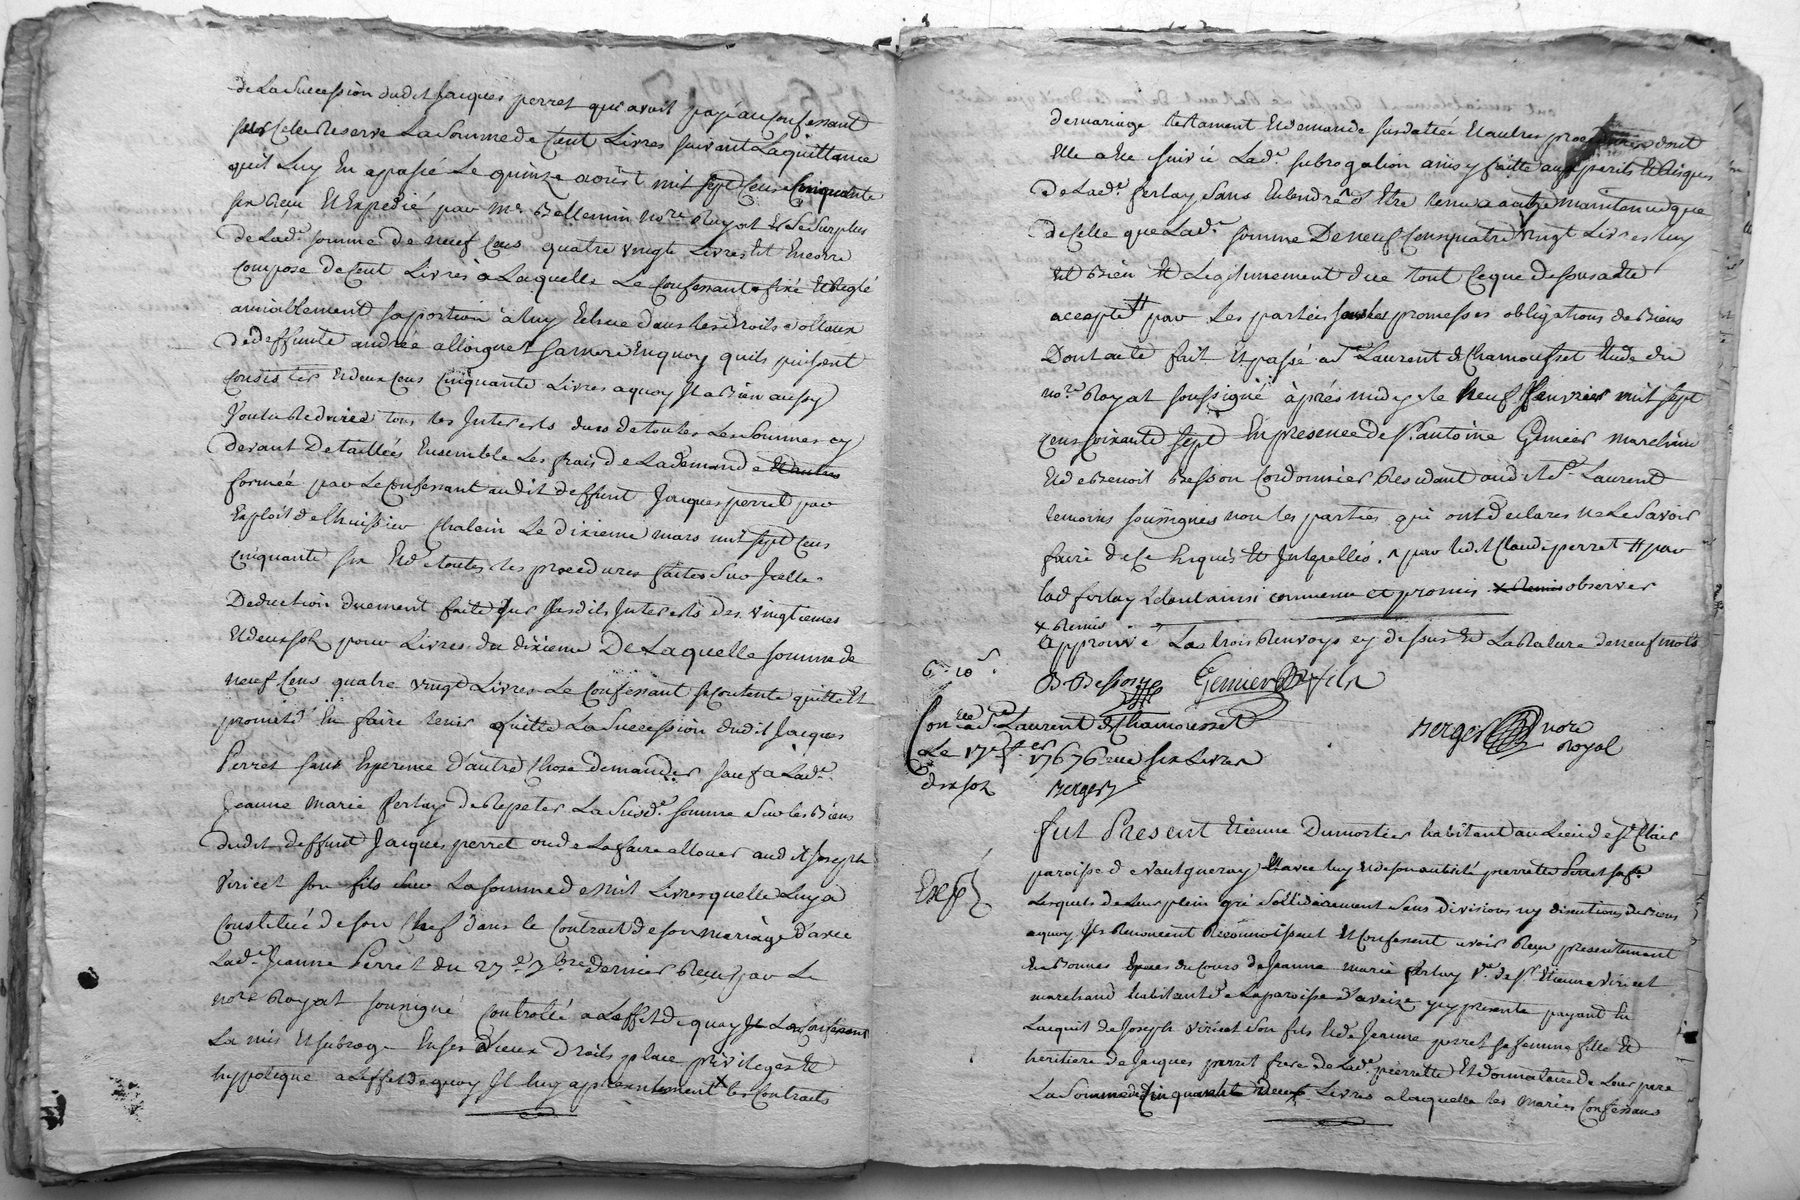 de La Succession dudit Jacques perret qui avoit payé au Confessant
sur Celle Reserve La Somme de Cent Livres suivant La quittance
qu'il Luy En a passée Le quinze aoust mil sept Cens Cinquante
six Receu Et Expedié par Me Bellemin nore Royal Et Le Surplus
de Lade somme de neuf Cens quatre vingt Livres Est Encorre
Composé de Cent Livres a Laquelle Le Confessant a fixé Et Reglé
amiablement sa portion a luy Echue dans Les Droits dottaux
de deffunte andrée alloignet sa mere En quoy qu'ils puissent
Consister Et deux Cens Cinquante Livres a quoy Il a Bien aussy
voulu Reduire tous les Interests dus de toutes Les Sommes cy
devant Detaillées Ensemble Les frais de La demande
formée par Le Confessant audit deffunt Jacques perret par
Exploit de Lhuissier Chalein Le dixieme mars mil sept Cens
Cinquante six Et de toutes les procedures faites Sur Icelle
Deduction duement faite sur Lesdits Interests des vingtiemes
Et deux sols pour Livres du dixieme De Laquelle somme de
neuf Cens quatre vingt Livres Le Confessant se Contente quitte Et
promet d'En faire tenir quitte La Succession dudit Jacques
Perret sans Esperence d'autre Chose demander sauf a Lade
Jeanne Marie ferlay de Repeter La Susde somme Sur les Biens
dudit deffunt Jacques perret ou de La faire allouer audit Joseph
viricet son fils Sur La somme de mil Livres quelle Luy a
Constitué de son Chef dans le Contrait de son mariage d'avec
Lade Jeanne Perret du 27e 7bre dernier Receu par Le
nore Royal soussigné Controllé a Leffet de quoy Il La Confessant
La mis Et subrogé En ses Lieux Droits place privileges Et
hypoteque a Leffet de quoy Il luy a presentement les Contraits
de mariage testament Et demande susdattée Et autres procedures dont
Elle a Eté suivie Lade subrogation ainsy faitte aux perils Et Risques
de Lade ferlay Sans Entendre Etre tenu a autre maintenue que
de Celle que Lade somme De neuf Cens quatre vingt Livres luy
Est Bien Et Legitimement due tout Ce que dessous a Eté
accepté # par Les parties sous les promesses obligations de Biens
Dont acte fait Et passé a St Laurent de Chamousset Etude du
nore Royal soussigné après midy Le neuf fevrier mil sept
Cens soixante sept En presence de Sr antoine Genier marchand
Et de Benoit Besson Cordonnier Residant audit St Laurent
temoins soussignés non les parties qui ont declaré ne Le Savoir
faire de Ce Enquis Et Interpellés. ^ par ledit Claude perret # par
lad ferlay Et dont ainsi convenu et promis observer
x Remis
Approuvé Les trois Renvoys cy dessus Et La Rature de neuf mots
6 " 10 s.
B Besson Genier fils
Conllé a St Laurent de Chamousset
Berger nore
Royal
Le 17e fer 1767 Receu six Livres
dix sols Berger
fut Present Etienne Dumortier habitant au Lieu de St Clair
paroisse de vaulgneray Et avec luy Et de son authité pierrette Perret sa fe
Exped
Lesquels de Leur plein gré Sollidairement Sans division ny discution de Biens
aquoy Ils Renoncent Reconnoissent Et Confessent avoir Receu presentement
En Bonnes Especes du Cours de Jeanne Marie ferlay ve de Sr Etienne viricet
marchand habitante de La paroisse d'aveize, Icy presente payant En
Lacquit de Joseph viricet Son fils Et de Jeanne perret sa femme fille Et
heritiere de Jacques perret frere de Lade pierrette Et donnataire de Leur pere
La Somme de Cinquante deux Livres a laquelle les mariés Confessans